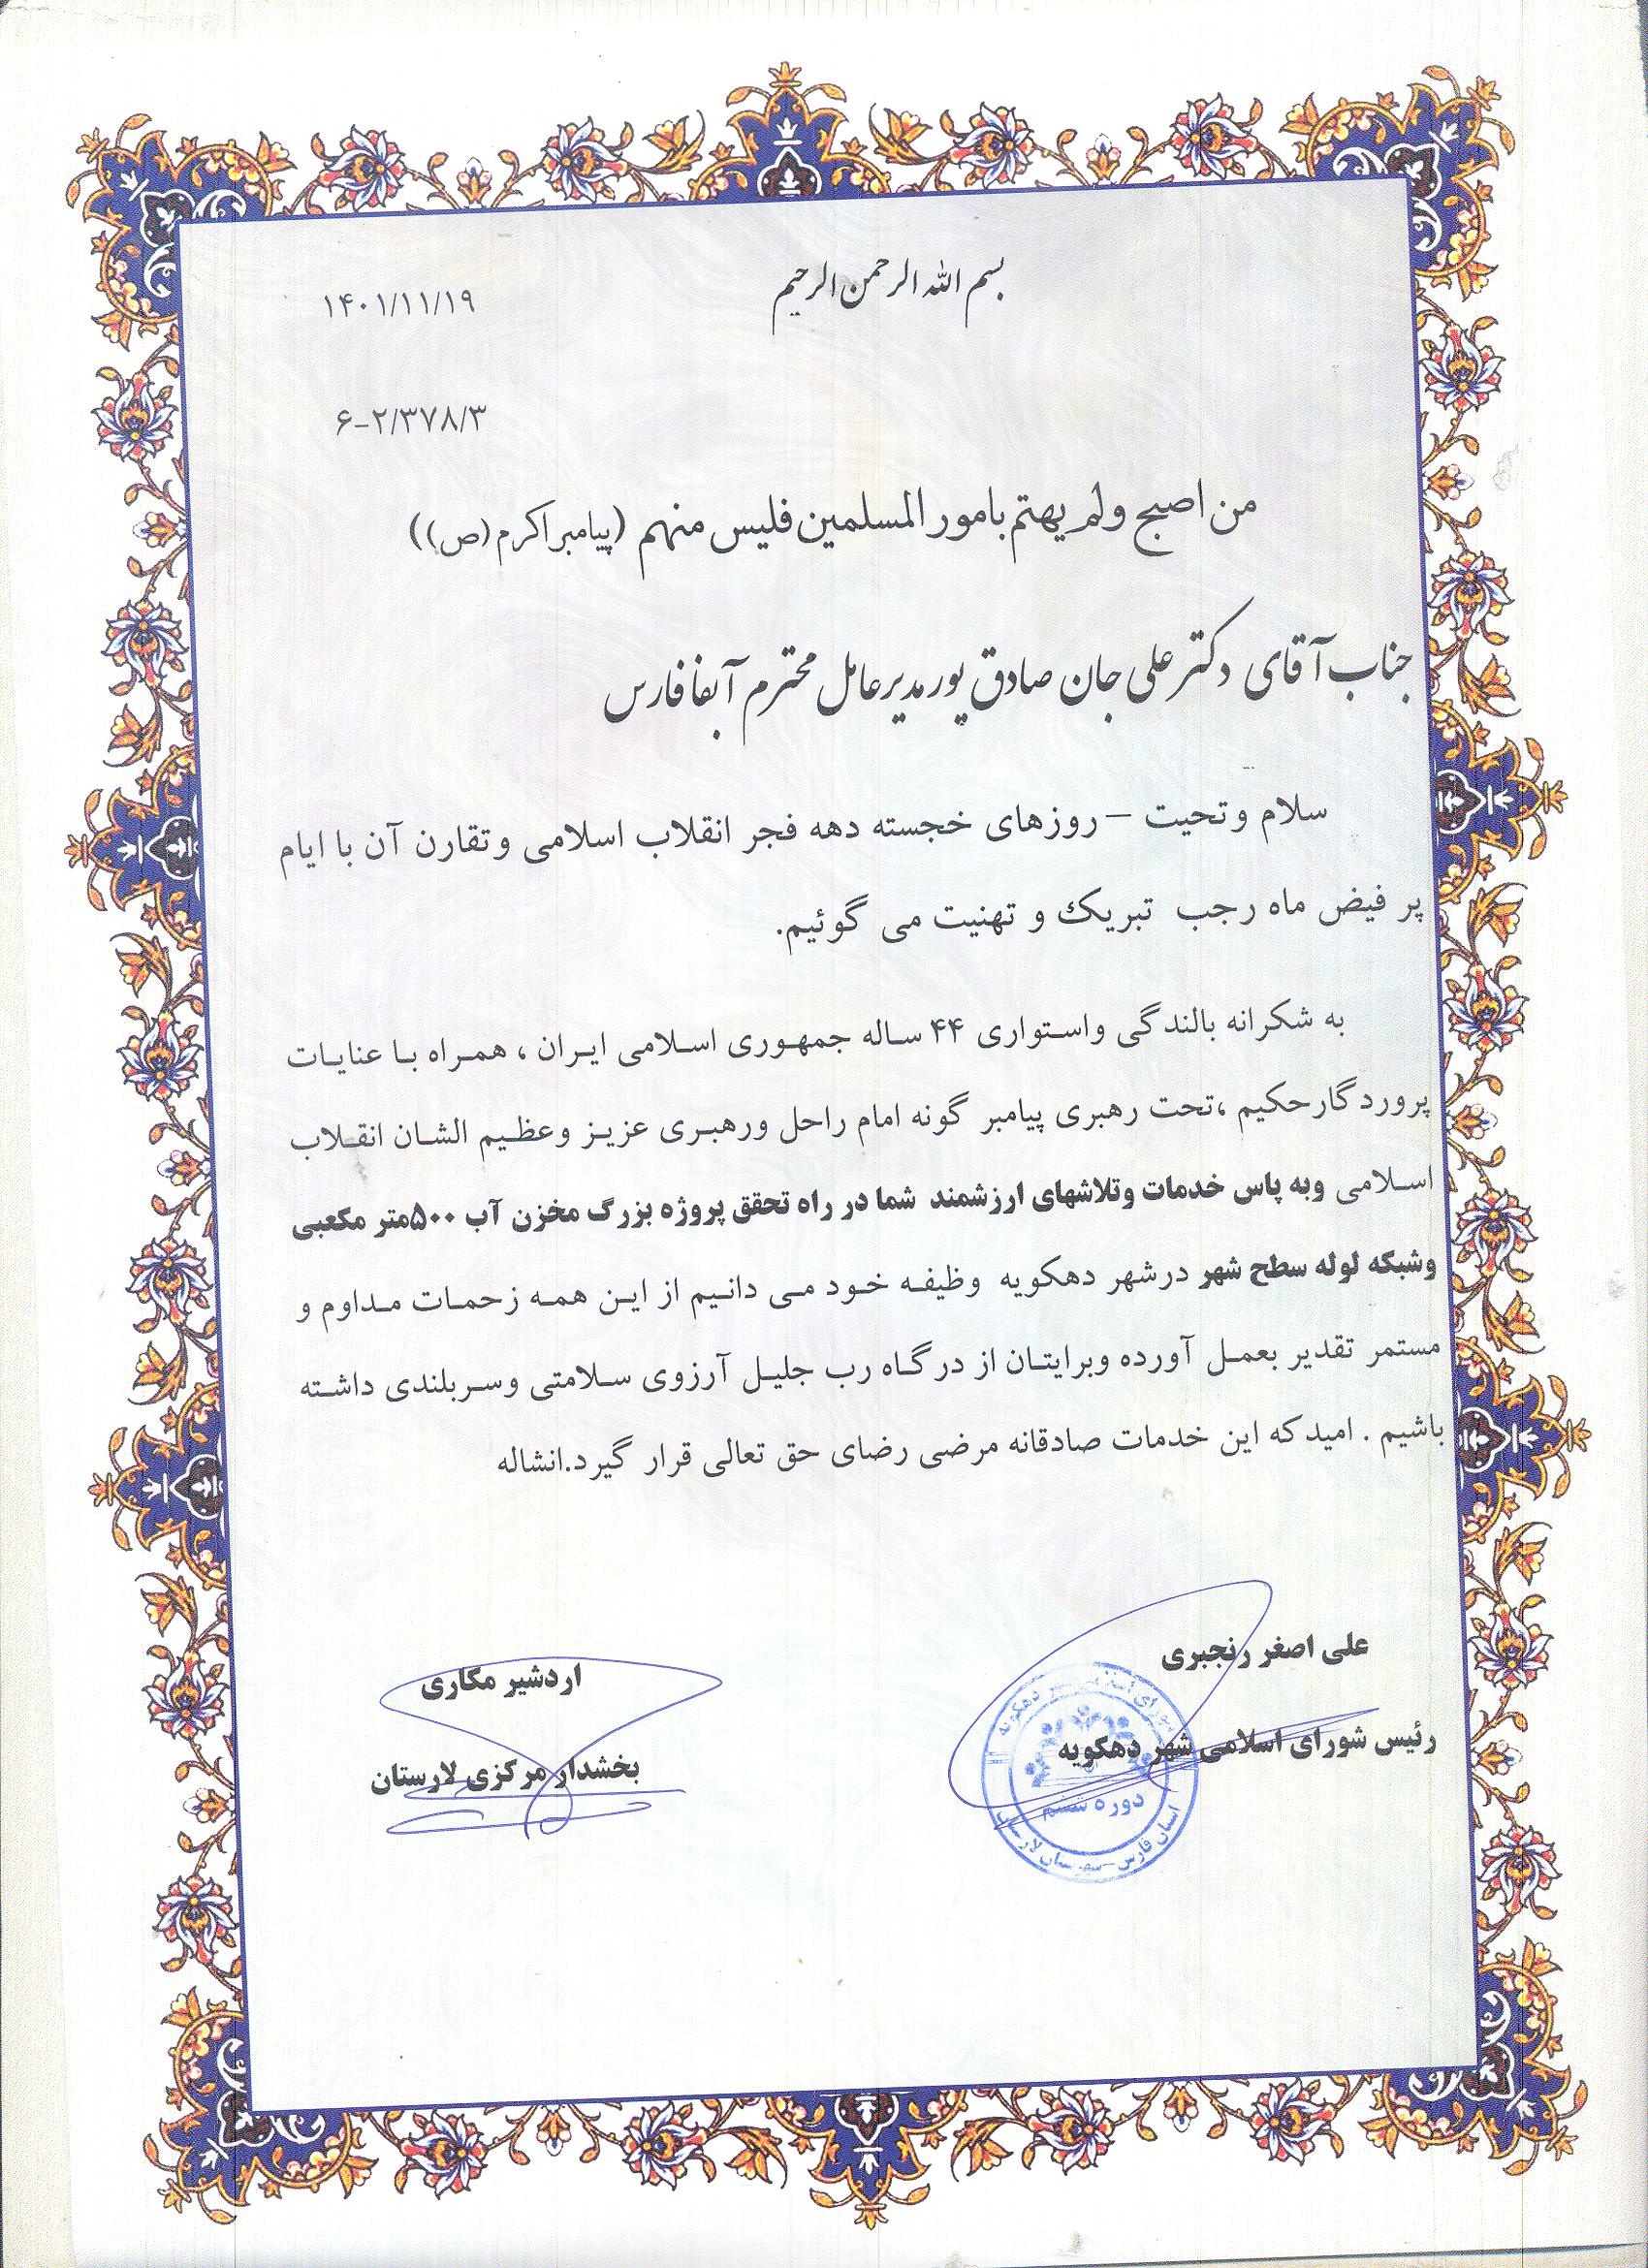 بسم الله الرحمن الرحیم
۱۴۰۱/۱۱/۱۹
۶-۲/۳۷۸/۳
من اصبح ولم یهتم بامور المسلمین فلیس منهم (پیامبر اکرم (ص))
جناب آقای دکتر علی جان صادق پور مدیرعامل محترم آبفا فارس
سلام وتحیت – روزهای خجسته دهه فجر انقلاب اسلامی وتقارن آن با ایام
پر فیض ماه رجب تبریک و تهنیت می گوئیم.
به شکرانه بالندگی واستواری ۴۴ ساله جمهوری اسلامی ایران ، همراه با عنایات
پروردگارحکیم ،تحت رهبری پیامبر گونه امام راحل ورهبری عزیز وعظیم الشان انقلاب
اسلامی وبه پاس خدمات وتلاشهای ارزشمند شما در راه تحقق پروژه بزرگ مخزن آب ۵۰۰متر مکعبی
وشبکه لوله سطح شهر درشهر دهکویه وظیفه خود می دانیم از این همه زحمات مداوم و
مستمر تقدیر بعمل آورده وبرایتان از درگاه رب جلیل آرزوی سلامتی وسربلندی داشته
باشیم . امید که این خدمات صادقانه مرضی رضای حق تعالی قرار گیرد.انشاله
علی اصغر رنجبری
رئیس شورای اسلامی شهر دهکویه
اردشیر مکاری
بخشدار مرکزی لارستان
شورای اسلامی شهر دهکویه
دوره ششم
استان فارس - شهرستان لارستان